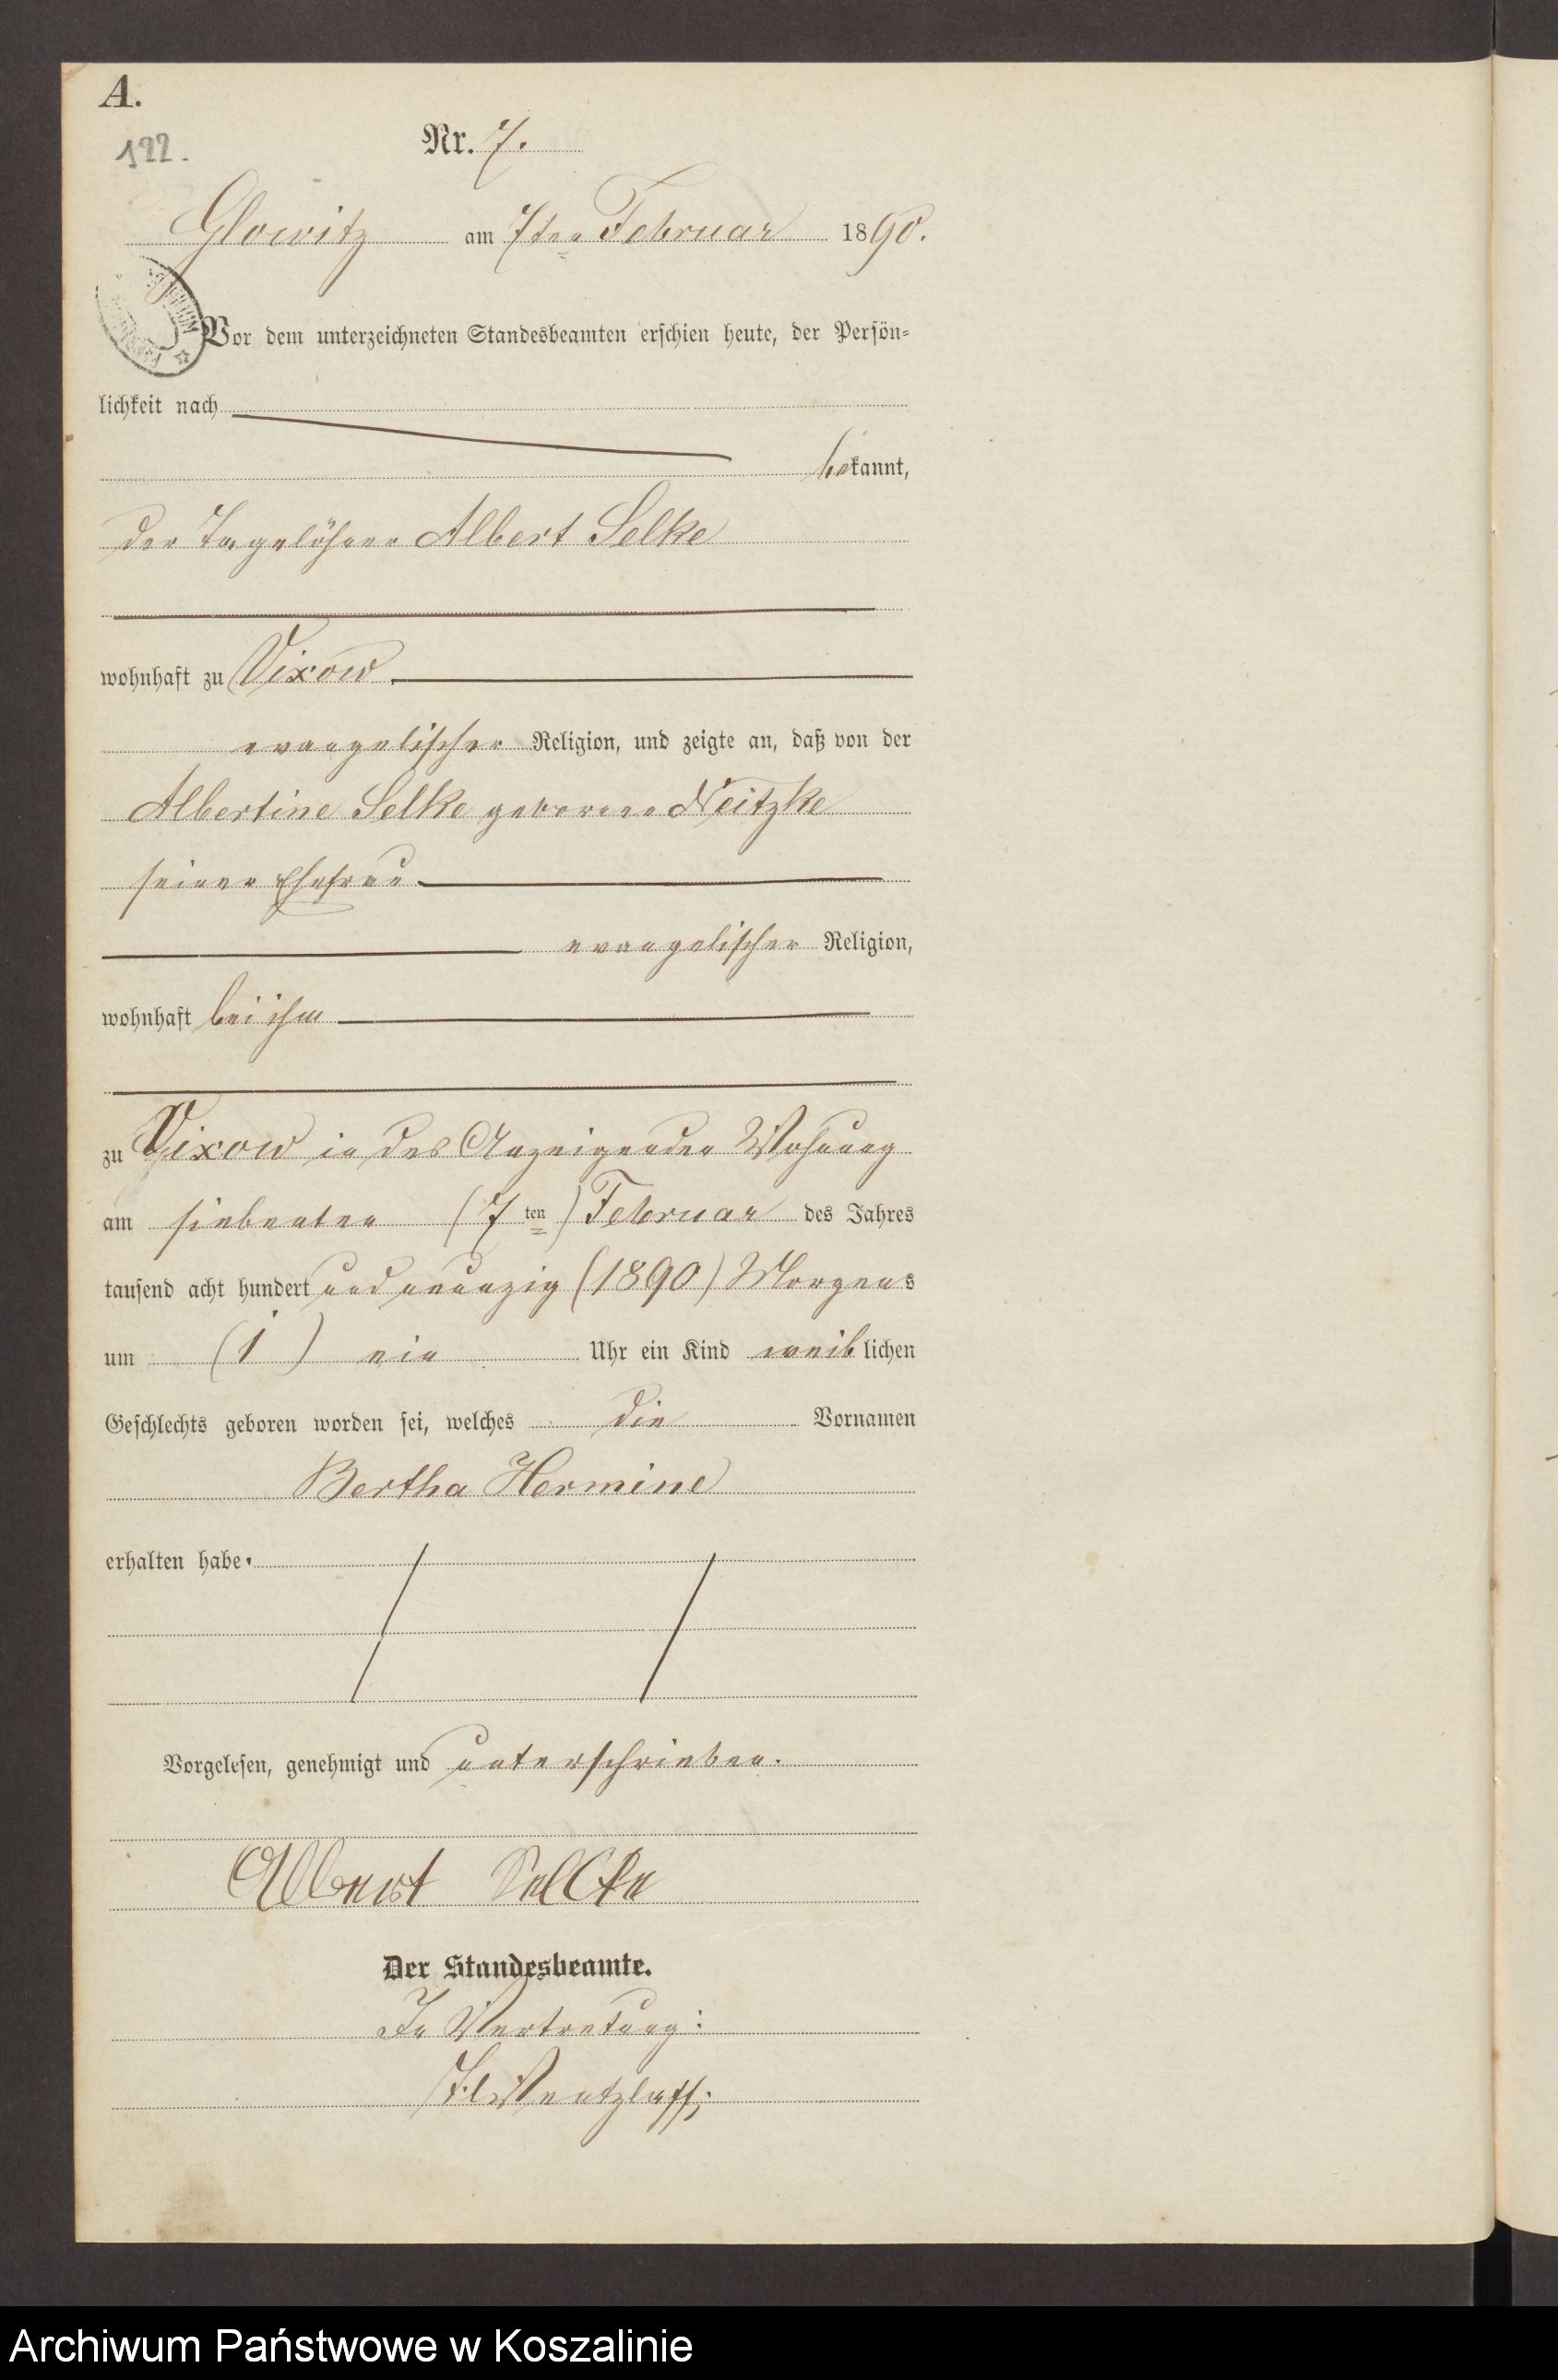 A.
122.
Nr. 7.
Glowitz am 7ten Februar 1890.
Vor dem unterzeichneten Standesbeamten erschien heute, der Persön-
lichkeit nach
bekannt,
der Tagelöhner Albert Selke
wohnhaft zu Vixow
evangelischer Religion, und zeigte an, daß von der
Albertine Selke geborene Neitzke
seiner Ehefrau
evangelischer Religion,
wohnhaft bei ihm
zu Vixow in des Anzeigenden Wohnung
am siebenten (7ten) Februar des Jahres
tausend acht hundert und neunzig (1890) Morgens
um (1) ein Uhr ein Kind weiblichen
Geschlechts geboren worden sei, welches die Vornamen
Bertha Hermine
erhalten habe.
Vorgelesen, genehmigt und unterschrieben.
Albert Selcke
Der Standesbeamte.
In Vertretung:
Wentzlaff.
Archiwum Państwowe w Koszalinie